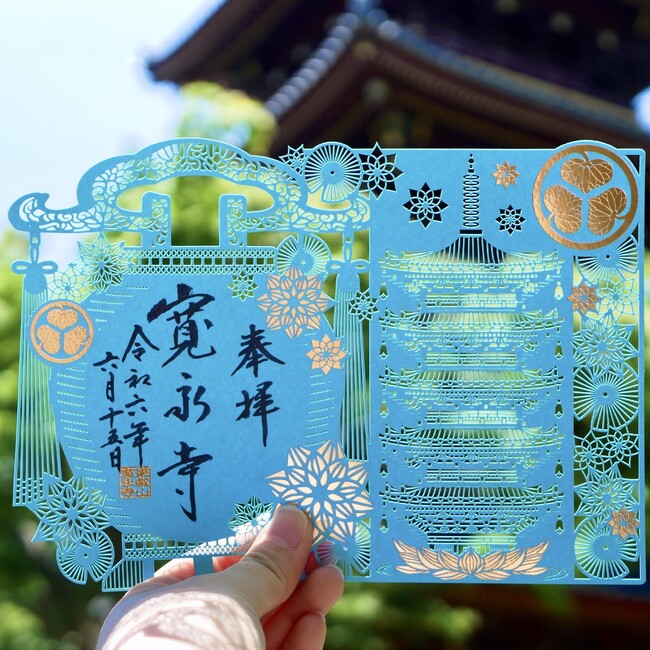 奉拝
寛永寺
令和六年
六月十五日
東叡山
寛永寺